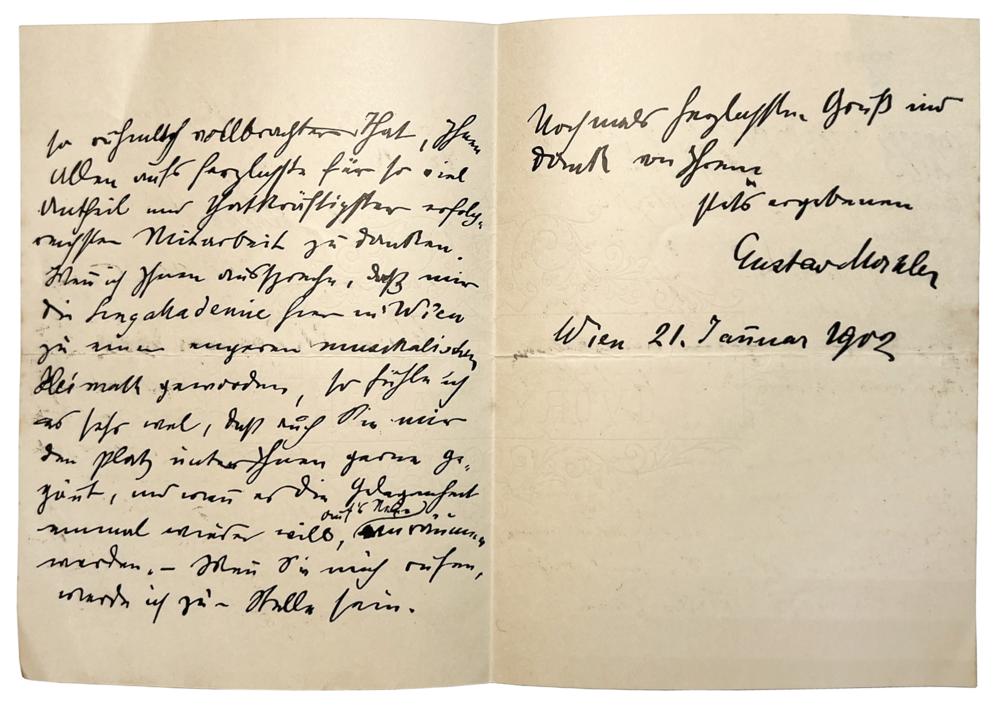 so rühmlich vollbrachter That, Ihnen
Allen aufs herzlichste für so viel
Antheil und thatkräftigster erfolg-
reichster Mitarbeit zu danken.
Weñ ich Ihnen ausspreche, daß mir
die Singakademie hier in Wien
zu einer engeren musikalischen
Heimath geworden, so fühle ich
es sehr wol, daß auch Sie mir
den Platz unter Ihnen gerne ge-
göñt, und weñ es die Gelegenheit
einmal wieder will, auf's Neue einräumen
werden. – Weñ Sie mich rufen,
werde ich zur Stelle sein.
Nochmals herzlichsten Gruß und
Dank von Ihrem
stets ergebenen
Gustav Mahler
Wien 21. Januar 1902